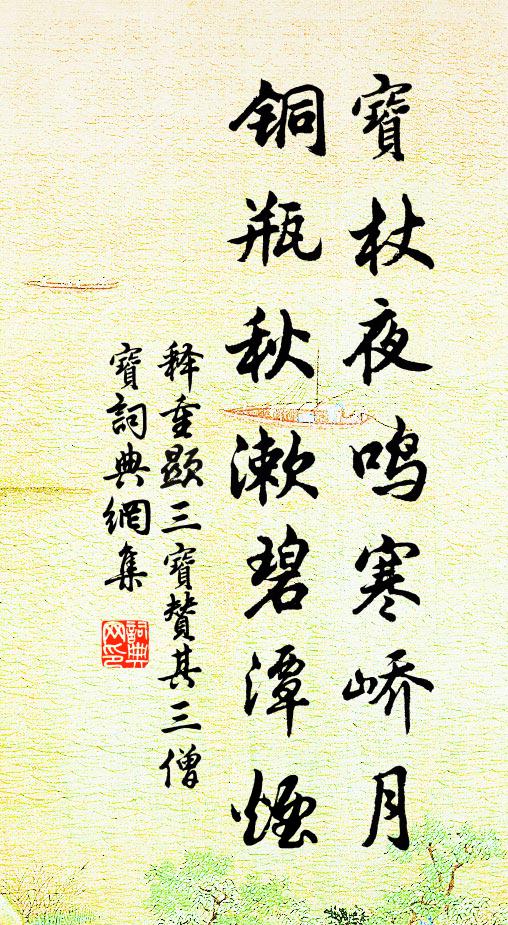 寶杖夜鸣寒峤月
铜瓶秋漱碧潭煙
释重顯三寶赞其三僧
寶詞典網集
詞典网印